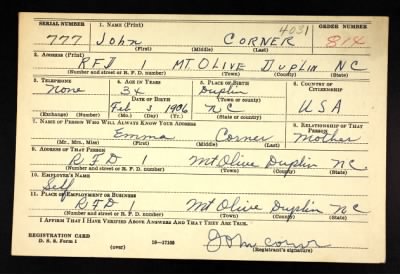 SERIAL NUMBER 1. NAME (Print) 4031 ORDER NUMBER
777 John CORNER 814
(First) (Middle) (Last)
2. ADDRESS (Print)
RFD 1 MT. OLIVE DUPLIN NC
(Number and street or R. F. D. number) (Town) (County) (State)
3. TELEPHONE 4. AGE IN YEARS 5. PLACE OF BIRTH 6. COUNTRY OF CITIZENSHIP
None 34 Duplin
DATE OF BIRTH (Town or county)
Feb 1906 NC USA
(Exchange) (Number) (Mo.) (Day) (Yr.) (State or country)
7. NAME OF PERSON WHO WILL ALWAYS KNOW YOUR ADDRESS 8. RELATIONSHIP OF THAT PERSON
Emma Corner Mother
(Mr., Mrs., Miss) (First) (Middle) (Last)
9. ADDRESS OF THAT PERSON
RFD 1 Mt Olive Duplin NC
(Number and street or R. F. D. number) (Town) (County) (State)
10. EMPLOYER'S NAME
Self
11. PLACE OF EMPLOYMENT OR BUSINESS
RFD 1 Mt Olive Duplin NC
(Number and street or R. F. D. number) (Town) (County) (State)
I AFFIRM THAT I HAVE VERIFIED ABOVE ANSWERS AND THAT THEY ARE TRUE.
REGISTRATION CARD
D. S. S. Form 1 (over) 16—17105 John corner
(Registrant's signature)